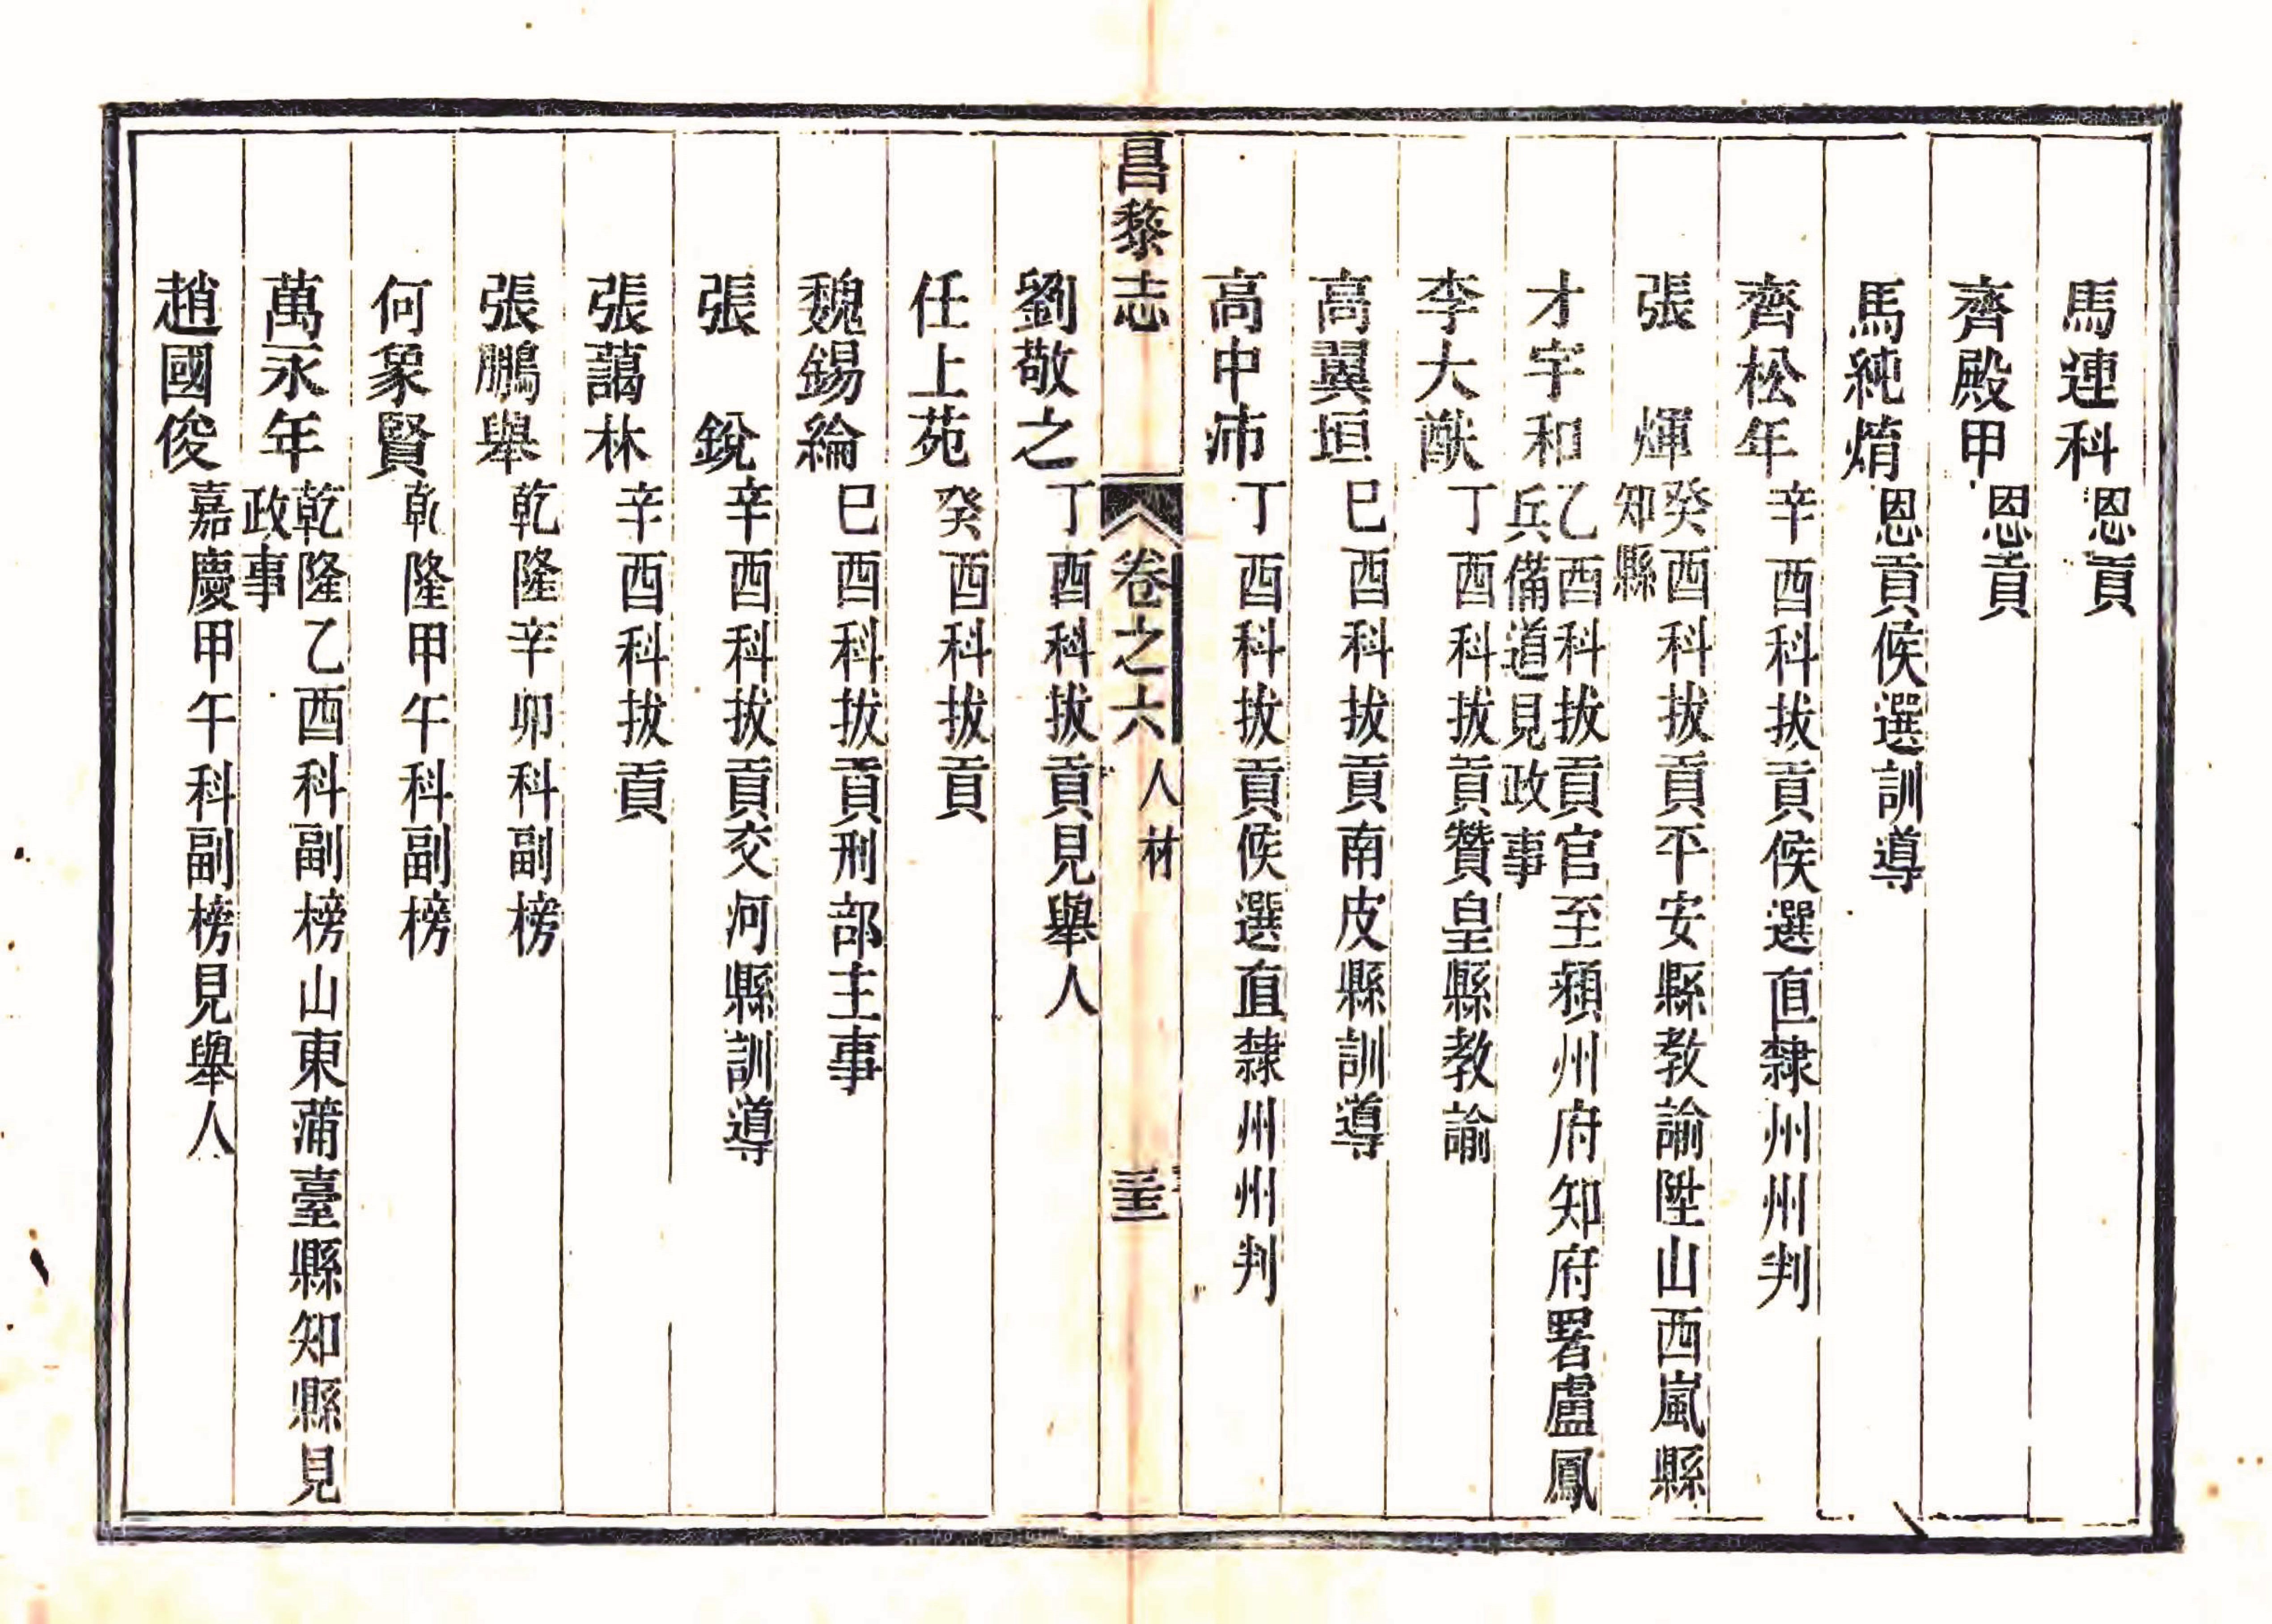 馬連科恩貢
齊殿甲恩貢
馬純熕恩貢候選訓導
齊松年辛酉科拔貢候選直隸州州判
張煇癸酉科拔貢平安縣教諭陞山西嵐縣
知縣
才宇和乙酉科拔貢官至潁州府知府署盧鳳
兵備道見政事
李大猷丁酉科拔貢贊皇縣教諭
高翼垣巳酉科拔貢南皮縣訓導
高中沛丁酉科拔貢候選直隸州州判
昌黎志 卷之六 人材 三十三
劉敬之丁酉科拔貢見舉人
任上苑癸酉科拔貢
魏錫綸巳酉科拔貢刑部主事
張銳辛酉科拔貢交河縣訓導
張藹林辛酉科拔貢
張鵬舉乾隆辛卯科副榜
何象賢乾隆甲午科副榜
萬永年乾隆乙酉科副榜山東蒲臺縣知縣見
政事
趙國俊嘉慶甲午科副榜見舉人